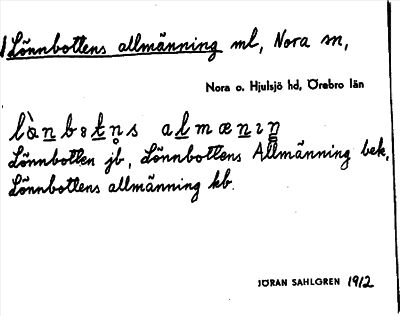 Lönnbottens allmänning ml, Nora sn,
Nora o. Hjulsjö hd, Örebro län
Lönnbotten jb, Lönnbottens Allmänning bek,
Lönnbottens allmänning kb.
JÖRAN SAHLGREN 1912